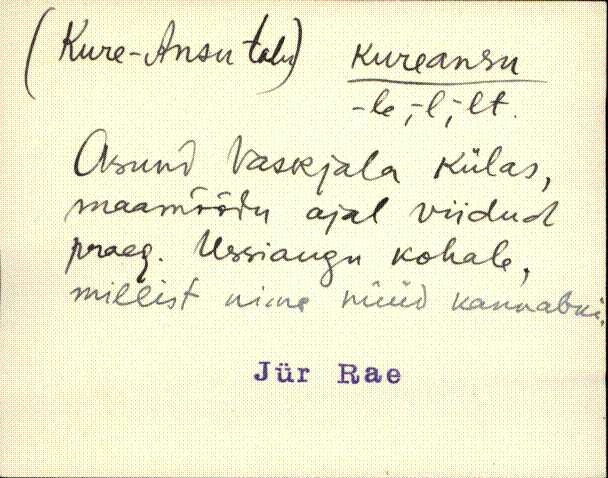 (Kure-Ansu talu) kureansu
-le, -l, -lt.
Asund Vaskjala külas,
maamõõdu ajal viidud
praeg. Ussiaugu kohale,
millist nime nüüd kannabki.
Jür Rae